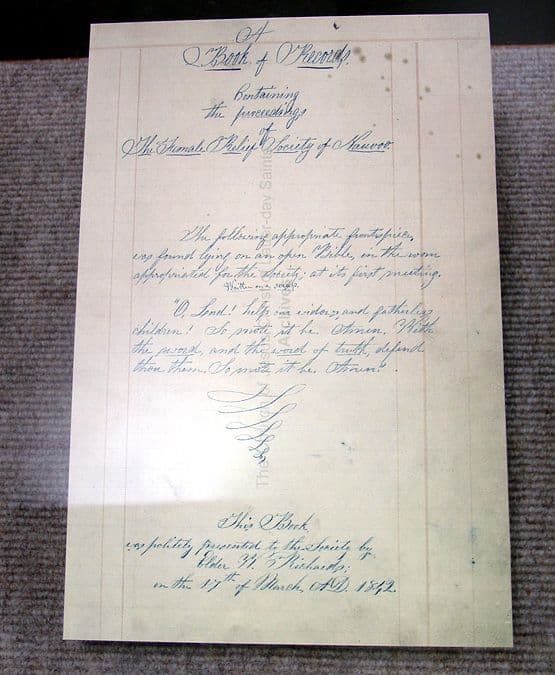 A
Book of Records.
Containing
the proceedings
of
The Female Relief Society of Nauvoo.
The following appropriate frontispiece
was found lying on an open Bible, in the room
appropriated for the Society; at its first meeting.
Written on a scrap.
"O, Lord! help our widows, and fatherless
children! So mote it be. Amen. With
the sword, and the word of truth, defend
thou them. So mote it be. Amen."
This Book
was politely presented to the Society by
Elder W. Richards;
on the 17th of March, A.D. 1842.